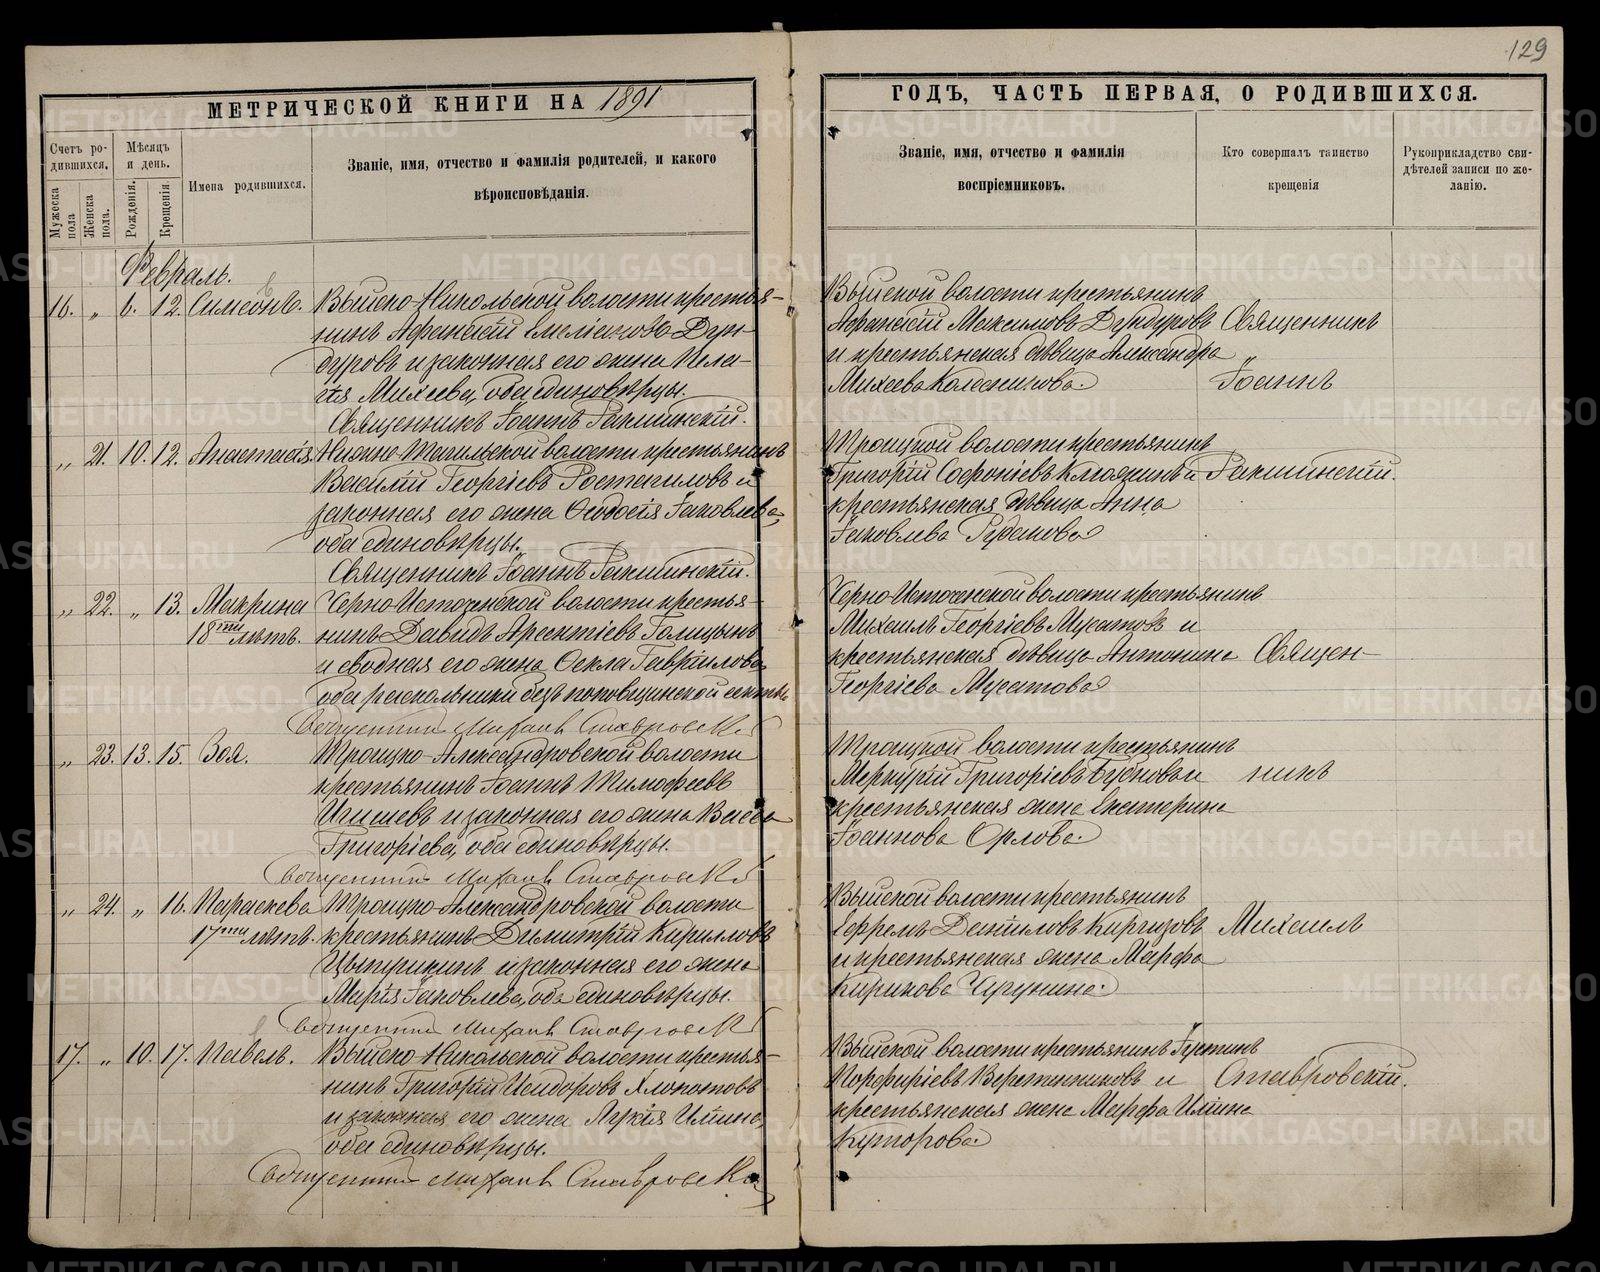 129
МЕТРИЧЕСКОЙ КНИГИ НА 1891
Счетъ ро-
дившихся.
Мѣсяцъ
и день.
Мужеска
пола
Женска
пола.
Рожденія.
Крещенія.
Имена родившихся.
Званіе, имя, отчество и фамилія родителей, и какого
вѣроисповѣданія.
Февраль.
16. „ 6. 12. Симеонъ. Выйско-Никольской волости крестья-
нинъ Афанасій
дуровъ и законная его жена Пела-
гія Михеева, оба единовѣрцы.
Священникъ Іоаннъ
„ 21. 10. 12. Анастасія. Нижне-Тагильской волости крестьянинъ
Василій Георгіевъ и
законная его жена Ѳеодосія Іаковлева,
оба единовѣрцы.
Священникъ Іоаннъ
„ 22. „ 13. Макрина Черно-Источенской волости крестья-
18ти лѣтъ. нинъ Давидъ Арсентіевъ Голицынъ
и сводная его жена Ѳекла Гавріилова,
оба раскольники безпоповщинской секты
Священникъ Михаилъ Ставровскій
„ 23. 13. 15. Зоя. Троицко-Александровской волости
крестьянинъ Іоаннъ Тимофеевъ
и законная его жена Васса
Григоріева, оба единовѣрцы.
Священникъ Михаилъ Ставровскій
„ 24. „ 16. Параскева Троицко-Александровской волости
17ти лѣтъ. крестьянинъ Димитрій Кирилловъ
и законная его жена
Марія Іаковлева, оба единовѣрцы.
Священникъ Михаилъ Ставровскій
17. „ 10. 17. Павелъ. Выйско-Никольской волости крестья-
нинъ Григорій Исидоровъ Хлопотовъ
и законная его жена Ильина,
оба единовѣрцы.
Священникъ Михаилъ Ставровскій
ГОДЪ, ЧАСТЬ ПЕРВАЯ, О РОДИВШИХСЯ.
Званіе, имя, отчество и фамилія
воспріемниковъ.
Кто совершалъ таинство
крещенія
Рукоприкладство сви-
дѣтелей записи по же-
ланію.
Выйской волости крестьянинъ
Афанасій Максимовъ Дундуровъ Священникъ
и крестьянская дѣвица Александра
Михеева Колесникова. Іоаннъ
Троицкой волости крестьянинъ
Григорій Софроніевъ и
крестьянская дѣвица Анна
Іаковлева Рудакова
Черно-Источенской волости крестьянинъ
Михаилъ Георгіевъ Мусатовъ и
крестьянская дѣвица Антонина Священ-
Георгіева Мусатова
Троицкой волости крестьянинъ
Меркурій Григоріевъ Бубновъ и никъ
крестьянская жена Екатерина
Іоаннова Орлова.
Выйской волости крестьянинъ
Ефремъ Даніиловъ Киргизовъ Михаилъ
и крестьянская жена Марфа
Кирикова
Выйской волости крестьянинъ Іустинъ
Порфиріевъ Веретенниковъ и Ставровскій.
крестьянская жена Марфа Ильина
Куторова
METRIKI.GASO-URAL.RU